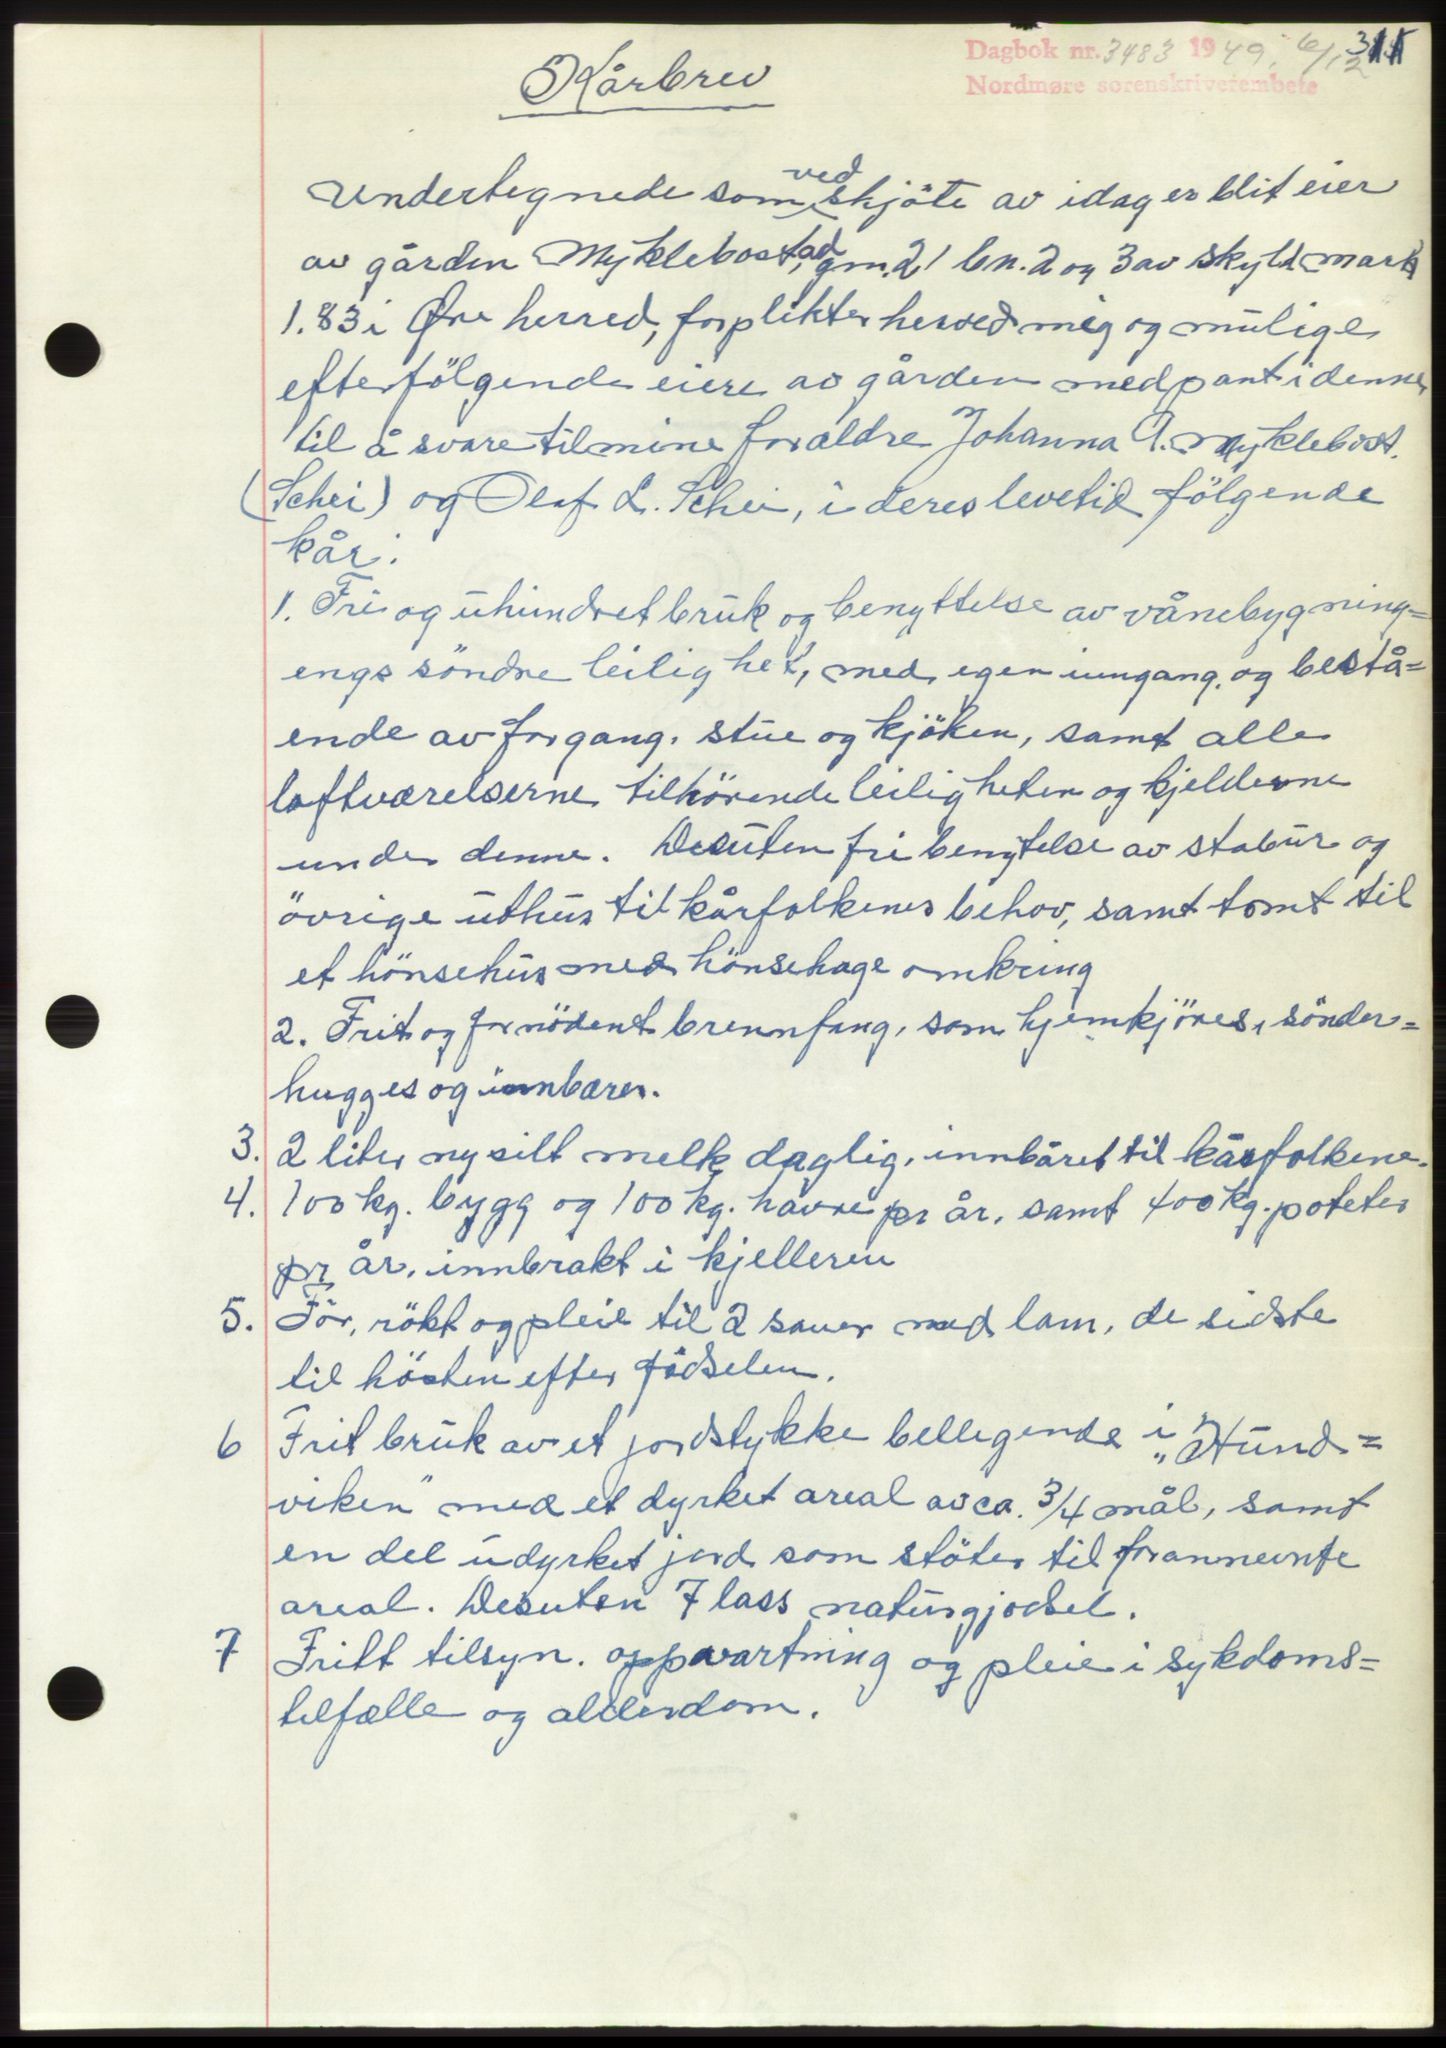 Dagbok nr. 3483 1949, 6/12
Nordmøre sorenskriverembete
Kårbrev
Undertegnede som ved skjöte av idag er blit eier
av gården Myklebostad, gnr. 21 bn. 2 og 3 av skyld mark
1.83 i Øre herred, forplikter herved mig og mulige
efterfölgende eiere av gården med pant i denne
til å svare til mine forældre Johanna A. Myklebost.
(Schei) og Olaf L. Schei, i deres levetid fölgende
kår:
1. Fri og uhindret bruk og benyttelse av vånebygning=
engs söndre leilighet, med egen inngang. og bestå=
ende av forgang. stue og kjöken, samt alle
loftværelserne tilhörende leiligheten og kjelderne
under denne. Desuten fri benytelse av stabur og
övrige uthus til kårfolkenes behov, samt tomt til
et hönsehus med hönsehage omkring
2. Frit og fornödent brennfang, som hjemkjöres, sönder=
hugges og innbæres.
3. 2 liter nysilt melk daglig, innbåret til kårfolkene.
4. 100 kg. bygg og 100 kg. havre pr år, samt 400 kg. poteter
pr år, innbrakt i kjelleren
5.För, rökt og pleie til 2 sauer med lam, de sidste
til hösten efter födselen.
6 Frit bruk av et jordstykke bellegende i "Hund=
viken" med et dyrket areal av ca. 3/4 mål, samt
en del udyrket jord som stöter til forannevnte
areal. Desuten 7 lass naturgjödsel.
7 Fritt tilsyn. oppvartning og pleie i sykdoms=
tilfælle og alderdom.